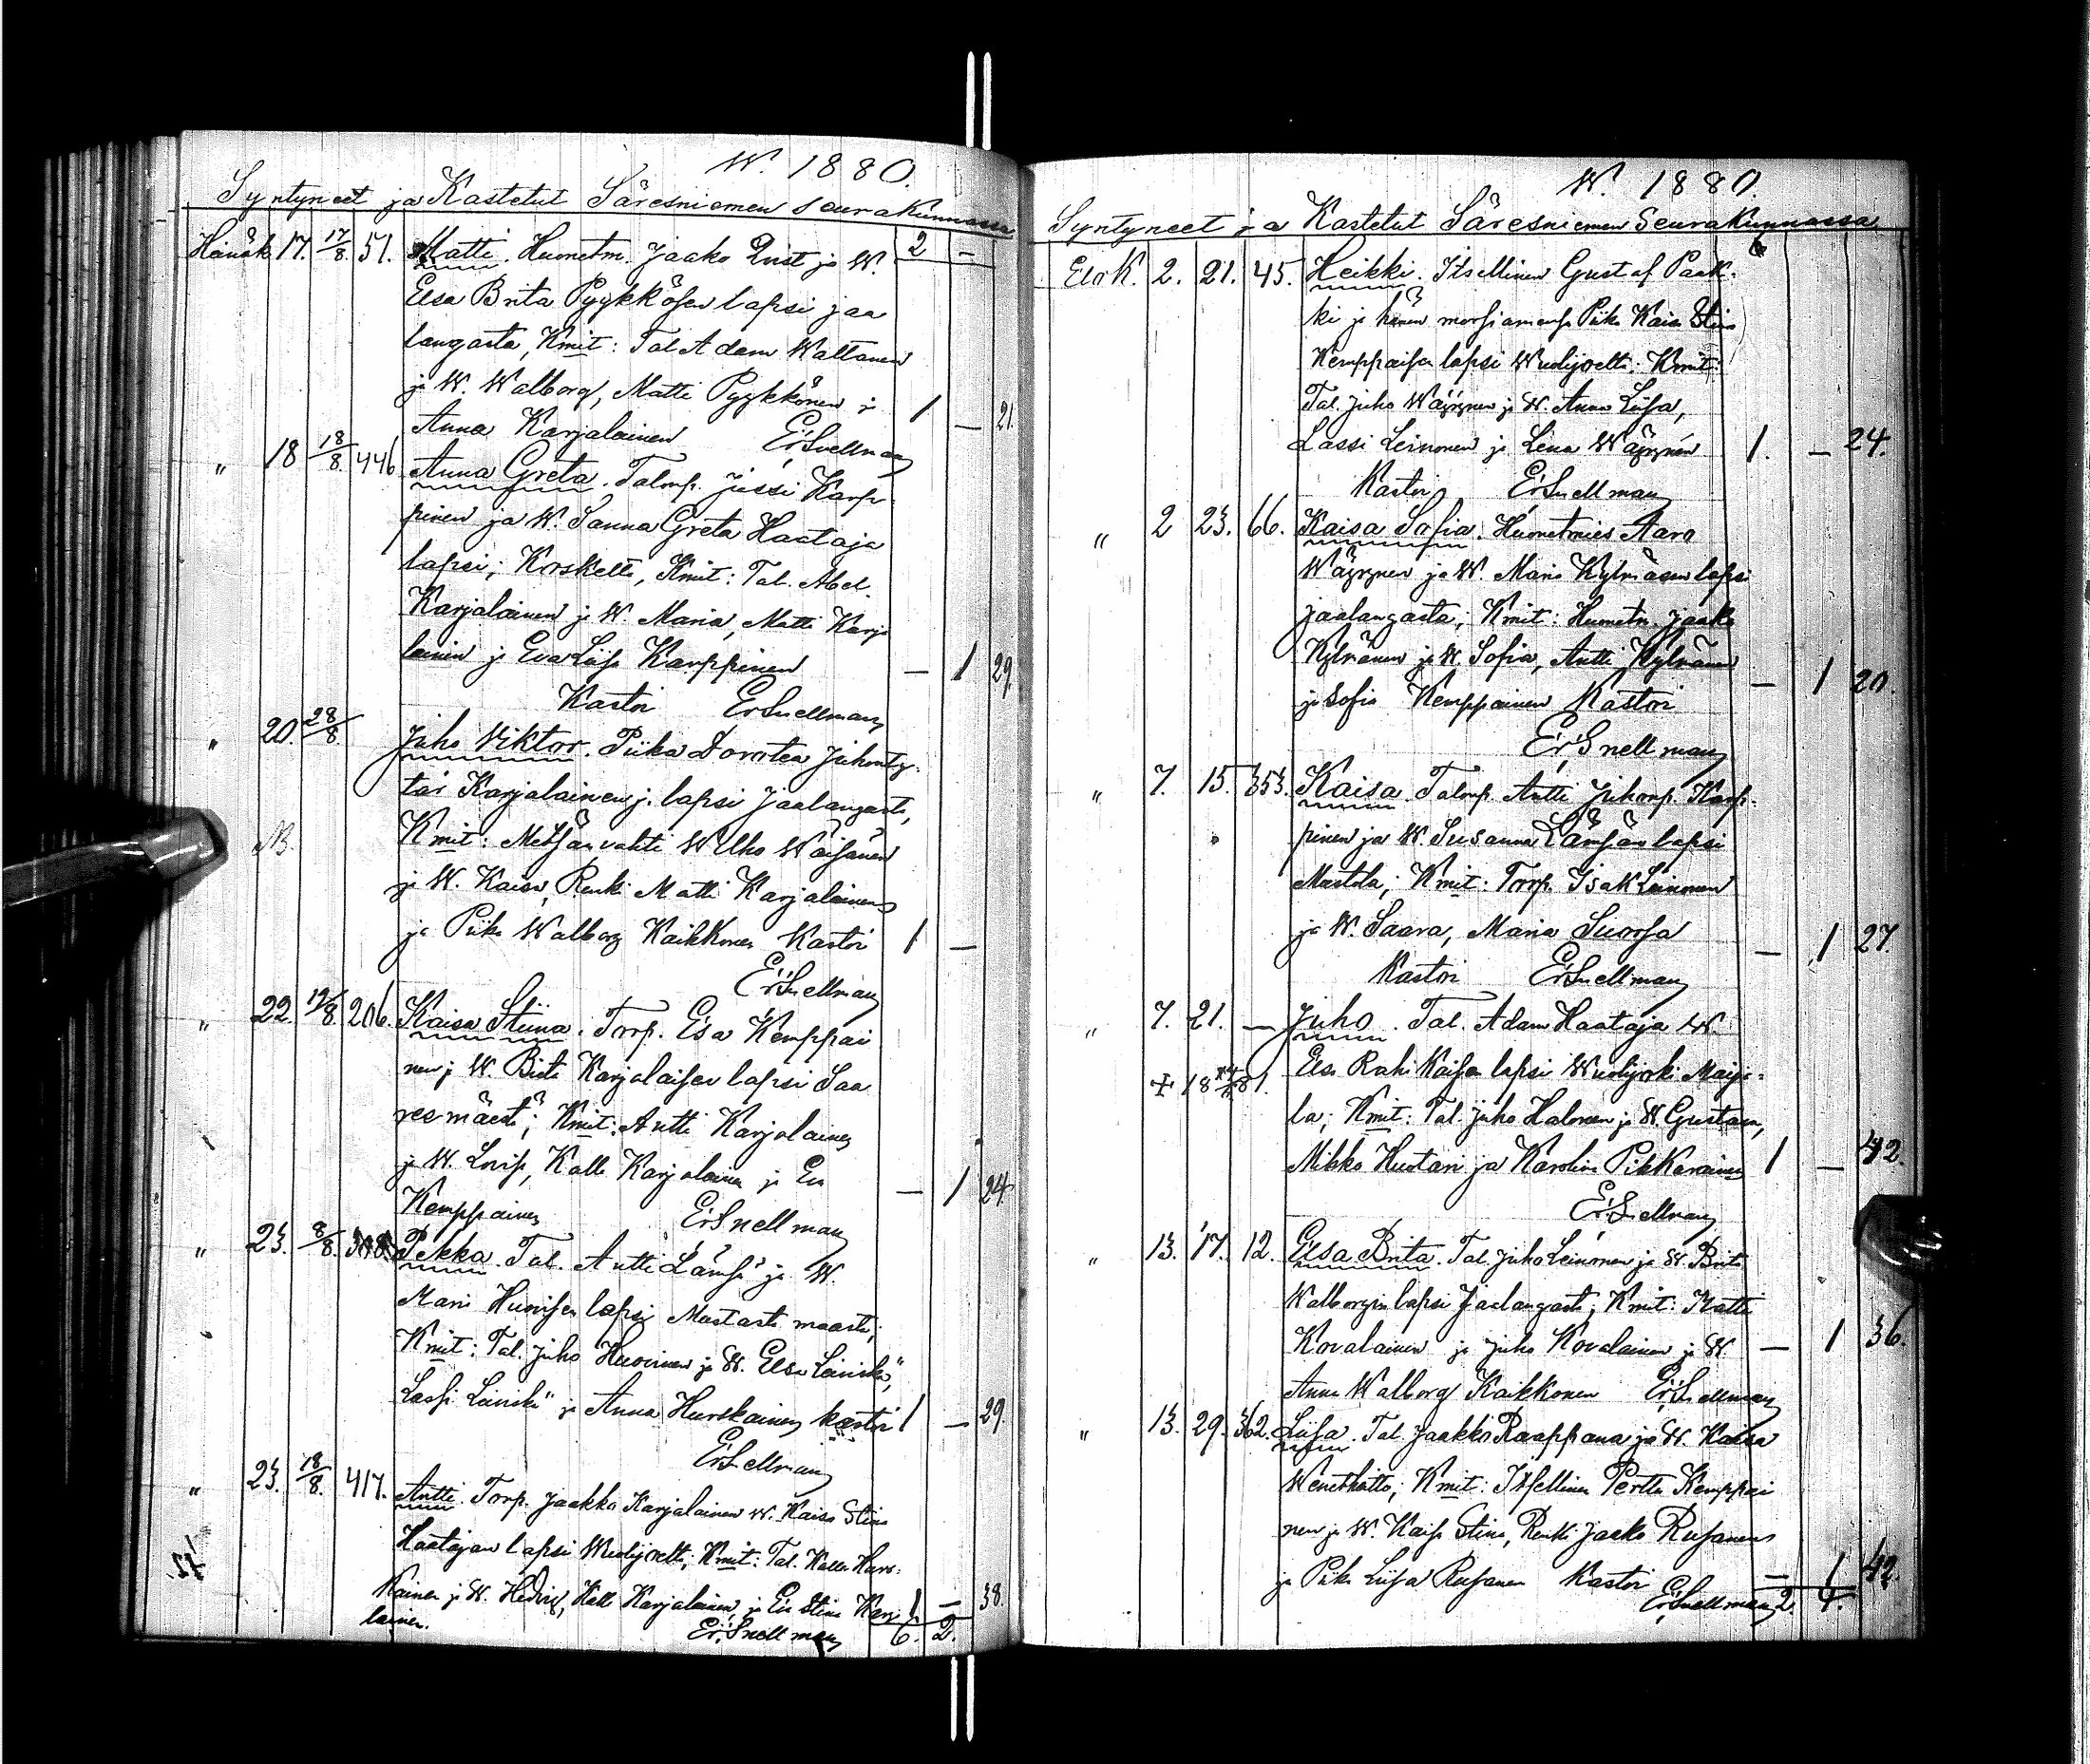 W. 1880.
Syntyneet ja Kastetut Säresniemen seurakunnassa
Heinäk 17. 17/8. 51. Matti. Huonetm. Jaako Qvist ja W. 2 –
Elsa Brita Pyykkösen lapsi Jaa
langasta, Kmit: Tal. Adam Waltanen
ja W. Walborg, Matti Pyykkönen ja
Anna Karjalainen 1 – 21.
ErSnellman
" 18 18/8. 446 Anna Greta. Talonp. Jussi Karp-
pinen ja W. Sanna Greta Haataja
lapsi; Koskelta, Kmit: Tal. Abel
Karjalainen ja W. Maria, Matti Karja
lainen ja Eva Liisa Karppinen – 1 29.
Kastoi ErSnellman
" 20. 28/8. Juho Viktor. Piika Dorotea Juhonty-
tär Karjalainen j. lapsi Jaalangasta,
NB. Kmit: Metsänvahti Wilho Wäisänen
ja W. Kaisa, Renki Matti Karjalainen
ja Piika Walborg Kaikkonen Kastoi 1 –
ErSnellman
" 22. 19/8. 206. Kaisa Stiina. Torp. Esa Kemppai
nen j. W. Brita Karjalaisen lapsi Saa
resmäestä; Kmit: Antti Karjalainen
ja W. Lovisa, Kalle Karjalainen ja Eva
Kemppainen – 1 24
ErSnellman
" 23. 8/8. Pekka. Tal. Antti Lämsä ja W.
Maria Huovisen lapsi Mustasta maasta;
Kmit: Tal. Juho Huovinen ja W. Elsa Leiniskä,
Lassi Leiniskä ja Anna Hurskainen kastoi 1 – 29
ErSnellman
" 23. 18/8. 417. Antti. Torp. Jaakko Karjalainen W. Kaisa Stina
Haatajan lapsi Wuolijoelta; Kmit: Tal. Kalle Hurs-
kainen ja W. Hedvig, Kalle Karjalainen ja Eva Stina Karja 1 – 38.
lainen. ErSnellman 6. 2.
W. 1880.
Syntyneet ja Kastetut Säresniemen Seurakunnassa
Elok. 2. 21. 45. Heikki. Itsellinen Gustaf Paak-
ki ja hänen morsiamensa Piika Kaisa Stina
Kemppaisen lapsi Wuolijoelta: Kmit:
Tal. Juho Wäyrynen ja W. Anna Liisa,
Lassi Leinonen ja Lena Wäyrynen 1. – 24.
Kastoi ErSnellman
" 2 23. 66. Kaisa Sofia. Huonetmies Aaro
Wäyrynen ja W. Maria Kylmäsen lapsi
Jaalangasta; Kmit: Huonetm. Jaako
Kylmänen ja W. Sofia, Antti Kylmänen
ja Sofia Kemppainen Kastoi – 1 20.
ErSnellman
" 7. 15. 353. Kaisa. Talonp. Antti Juhonp. Karp-
pinen ja W. Susanna Lämsän lapsi
Mustola; Kmit: Torp. Isak Leinonen
ja W. Saara, Maria Suorsa – 1 27.
Kastoi ErSnellman
" 7. 21. – Juho. Tal. Adam Haataja W.
Elsa Rahikaisen lapsi Wuolijoki Maija-
la; Kmit: Tal. Juho Halonen ja W. Gustava,
Mikko Huotari ja Karolina Pikkarainen 1 – 42.
ErSnellman
" 13. 17. 12. Elsa Brita. Tal. Juho Leinonen ja W. Brita
Walborgin lapsi Jaalangasta; Kmit: Matti
Kovalainen ja Juho Kovalainen ja W. – 1 36.
Anna Walborg Kaikkonen ErSnellman
" 13. 29. 362. Liisa. Tal. Jaakko Raappana ja W. Kaisa
Wenetheitto; Kmit: Itsellinen Perttu Kemppai
nen ja W. Kaisa Stina, Renki Jaako Rusanen
ja Piika Liisa Rusanen Kastoi – 1 42.
ErSnellman 2. 4.